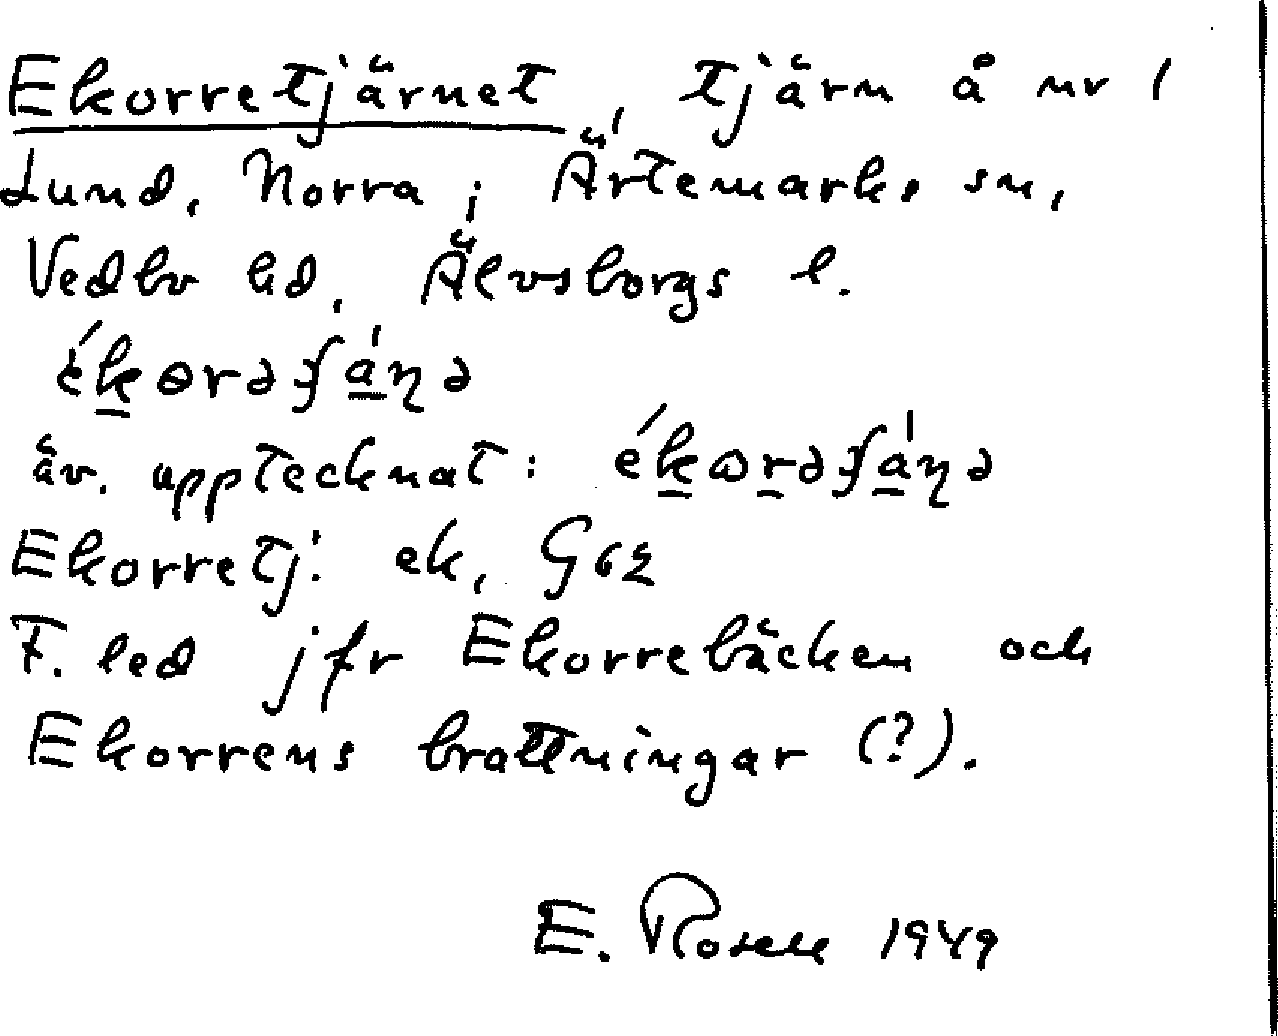 Ekorretjärnet, tjärn å nr 1
Lund, Norra i Ärtemarks sn,
Vedbo hd, Älvsborgs l.
äv. upptecknat:
Ekorretj: ek, G62
F. led jfr Ekorrebäcken och
Ekorrens brattningar (?).
E. Rosell 1949